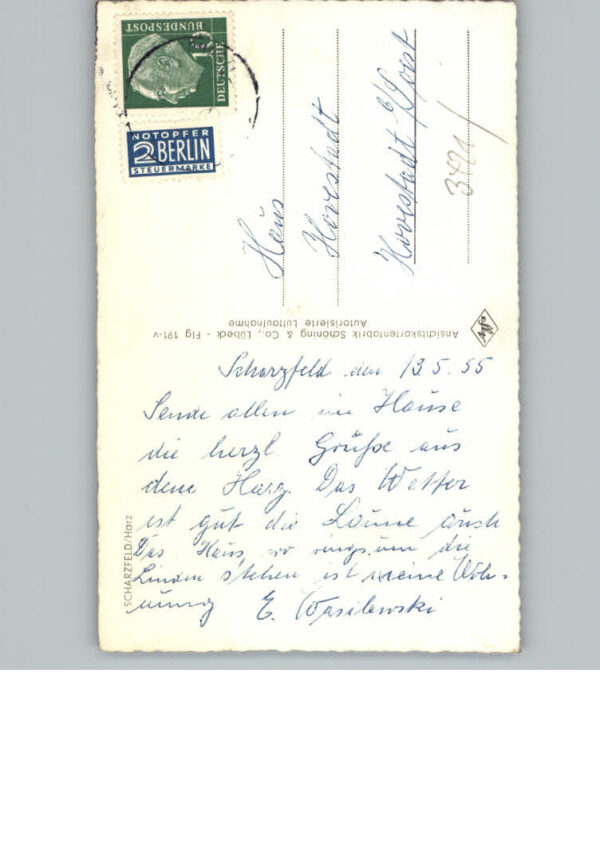 DEUTSCHE
BUNDESPOST
10
NOTOPFER
2 BERLIN
STEUERMARKE
Haus
Hovestadt
Hovestadt
3421/
Ansichtskartenfabrik Schöning & Co., Lübeck - Flg 191-v
Autorisierte Luftaufnahme
SCHARZFELD/Harz
Scharzfeld den 13.5.55
Sende allen im Hause
die herzl. Grüße aus
dem Harz. Das Wetter
ist gut die Laune auch
Das Haus, wo ringsum die
Linden stehen ist meine Woh-
nung E. Wasilewski